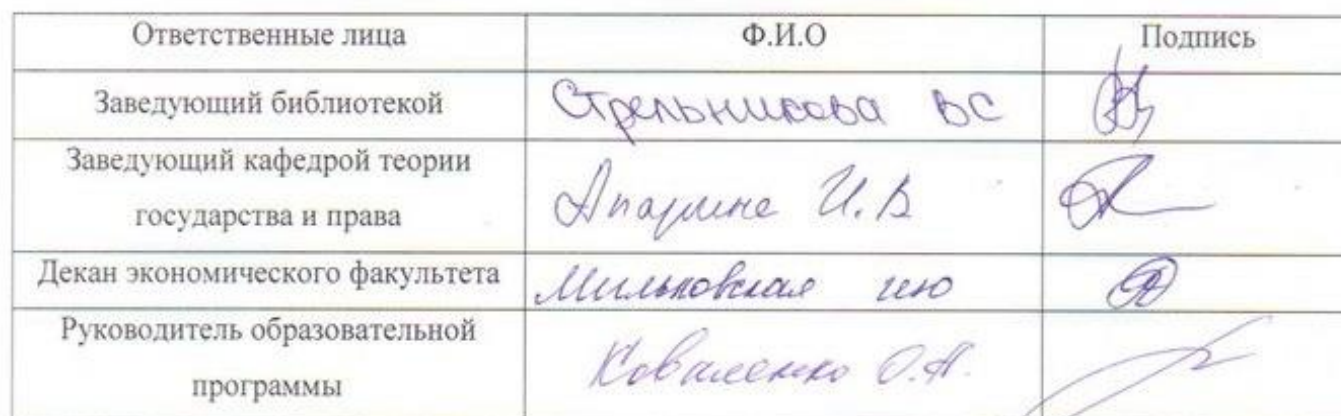 Ответственные лица Ф.И.О Подпись
Заведующий библиотекой Стрельникова ВС
Заведующий кафедрой теории
государства и права И.В
Декан экономического факультета Мильковская
Руководитель образовательной
программы Коваленко О.А.